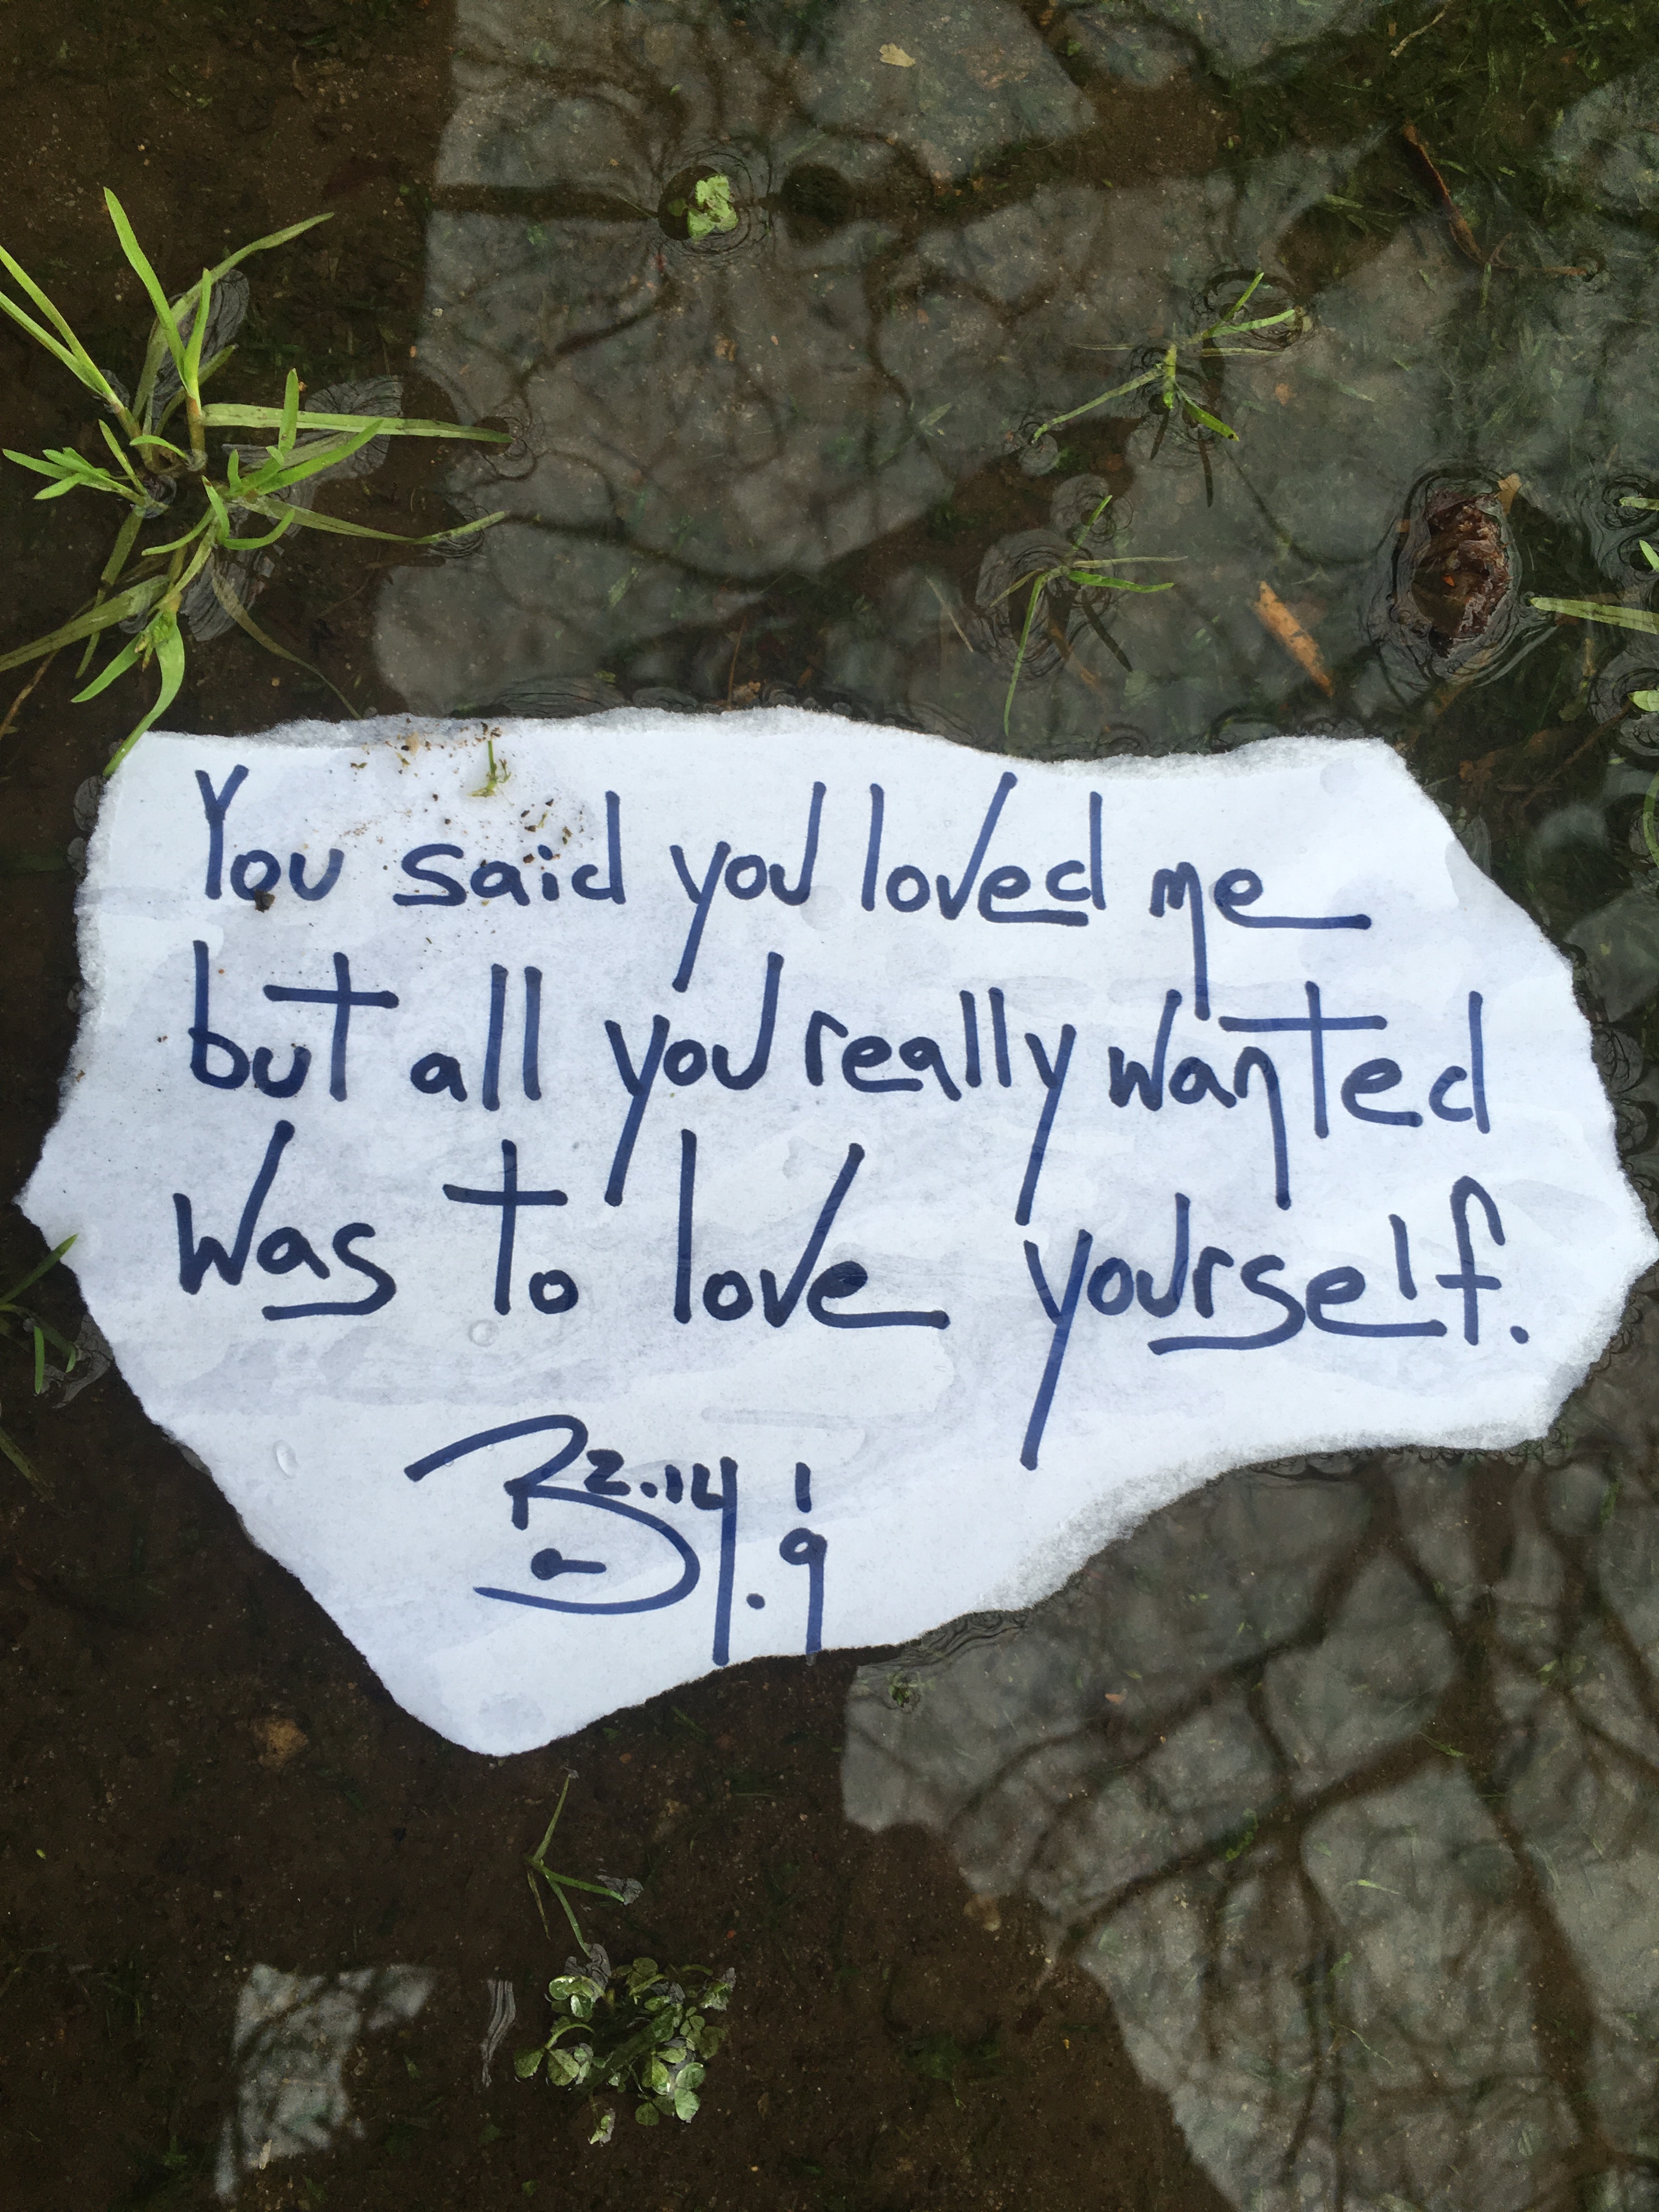 You said you loved me
but all you really wanted
was to love yourself.
2.14.19